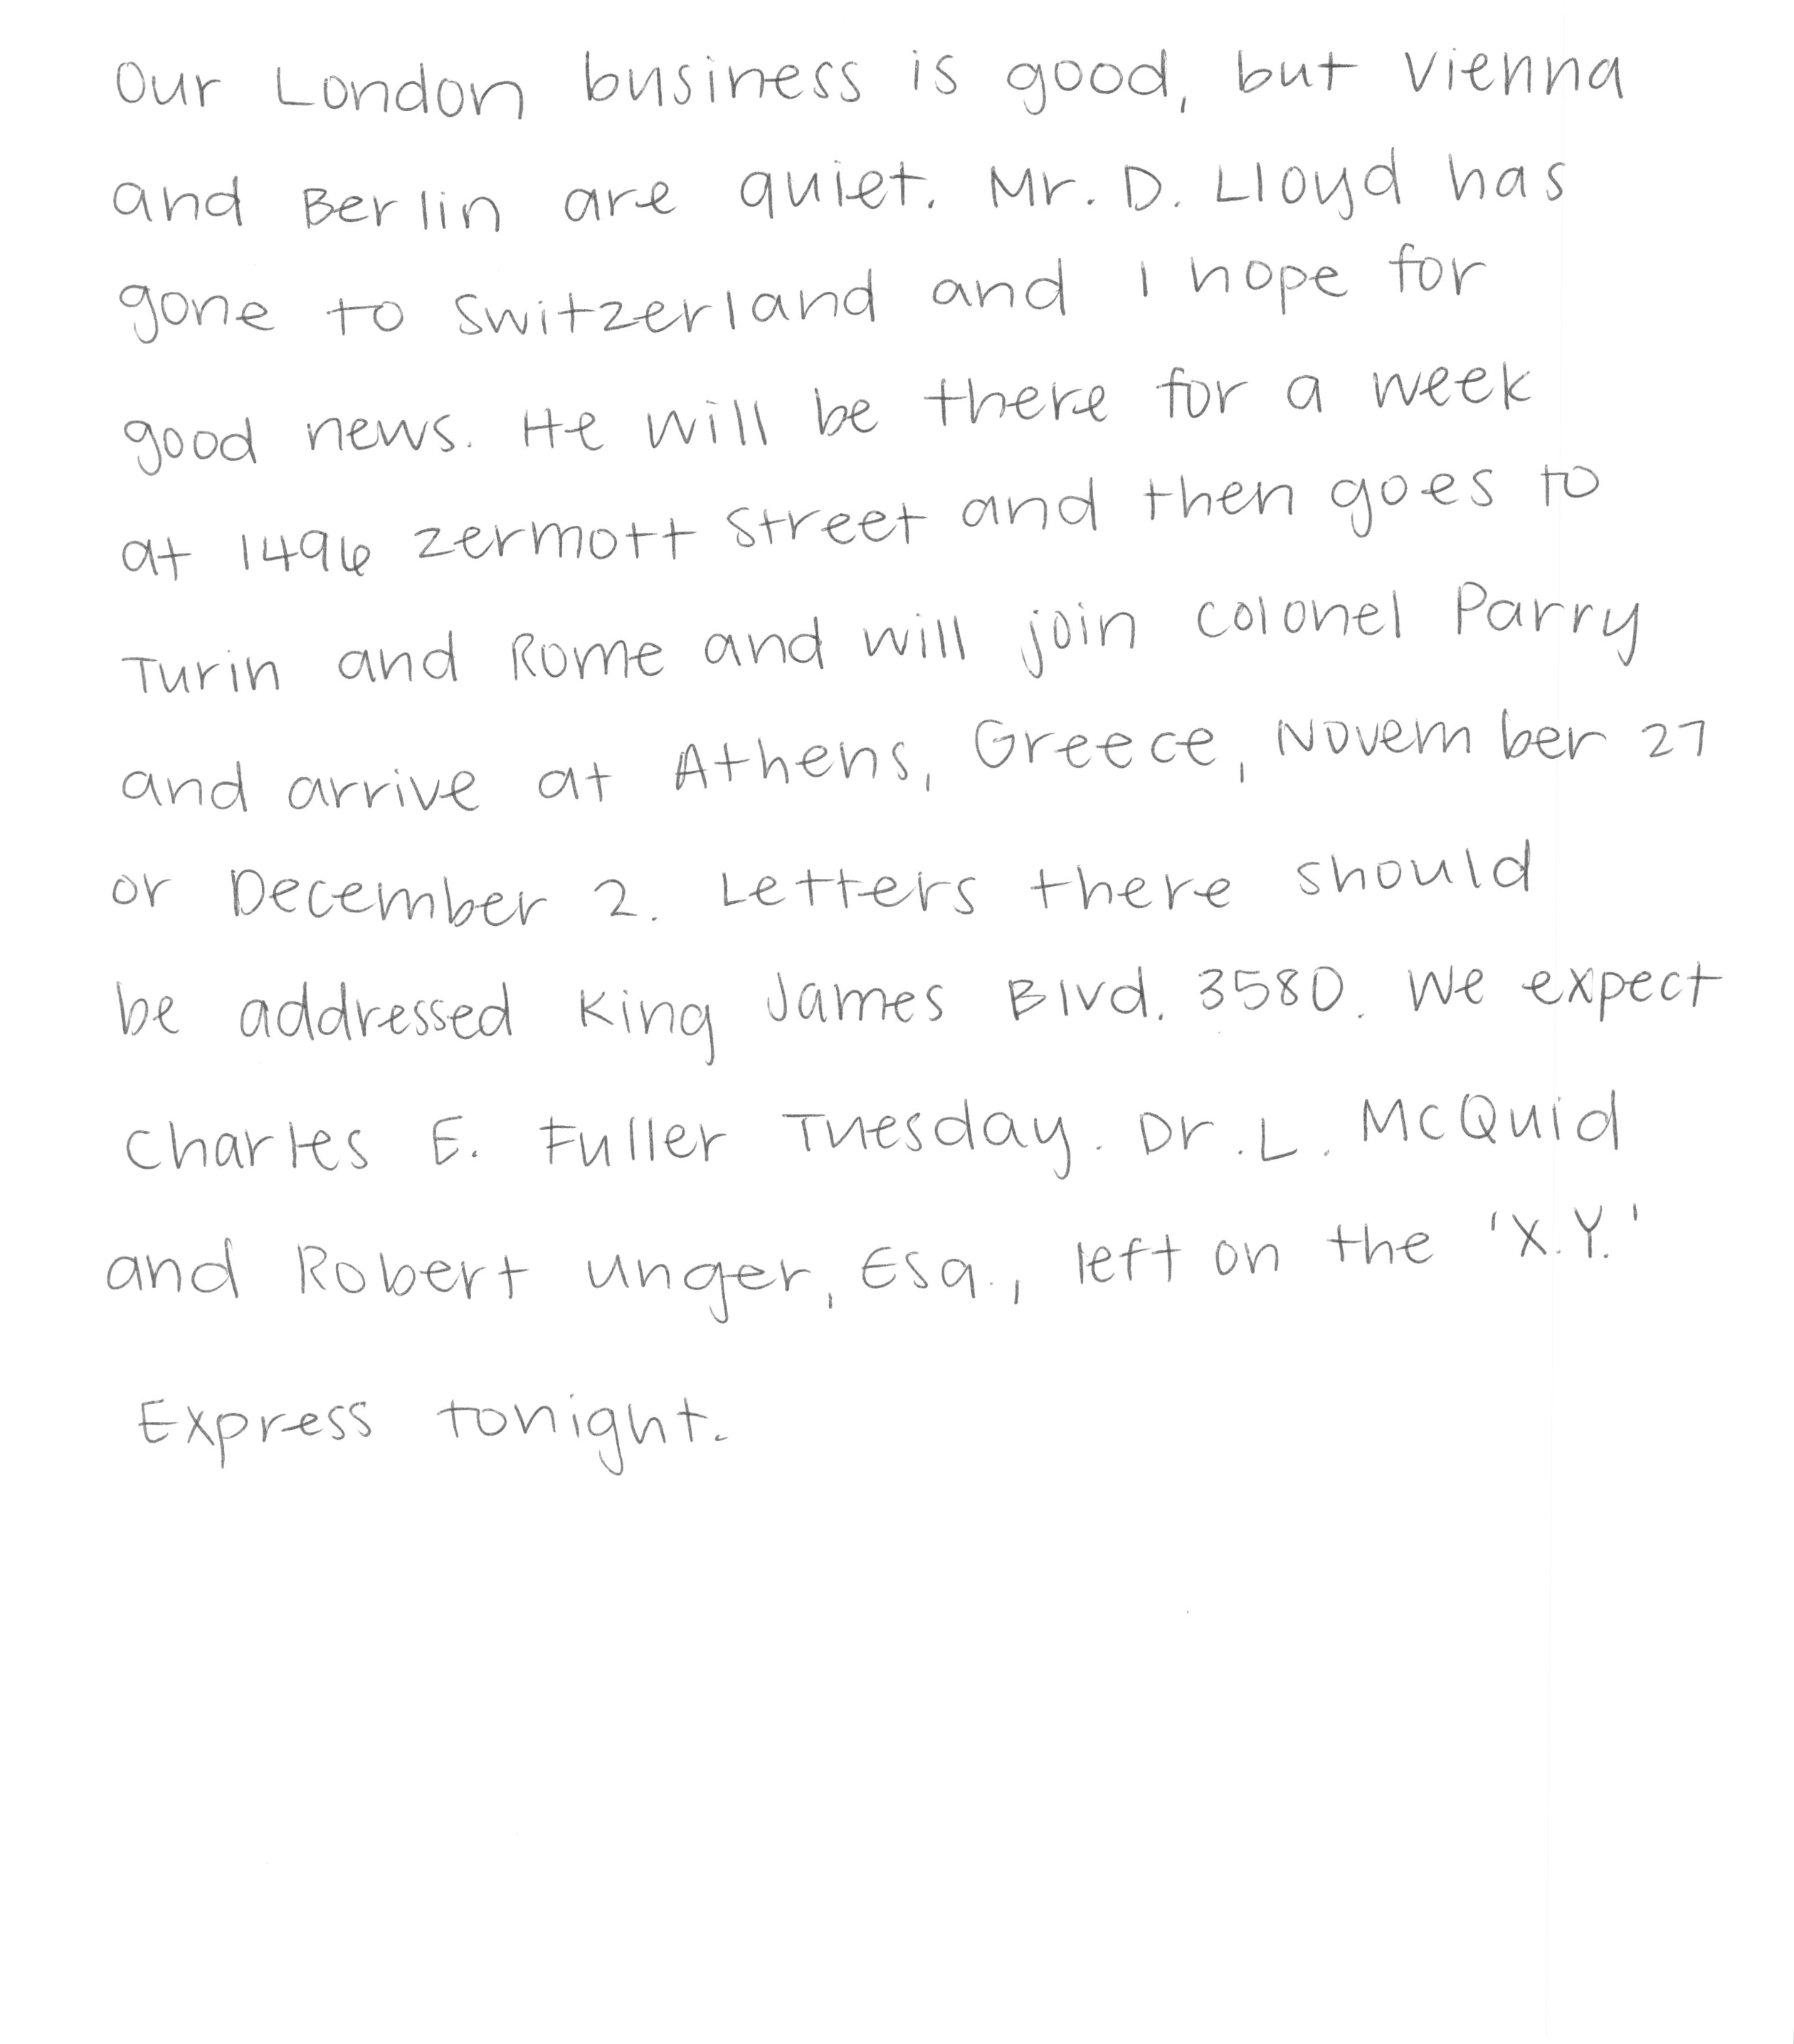 Our London business is good, but Vienna
and Berlin are quiet. Mr. D. Lloyd has
gone to Switzerland and I hope for
good news. He will be there for a week
at 1496 Zermott Street and then goes to
Turin and Rome and will join Colonel Parry
and arrive at Athens, Greece, November 27
or December 2. Letters there should
be addressed King James Blvd. 3580. We expect
Charles E. Fuller Tuesday. Dr. L. McQuid
and Robert Unger, Esq., left on the 'X.Y.'
Express tonight.